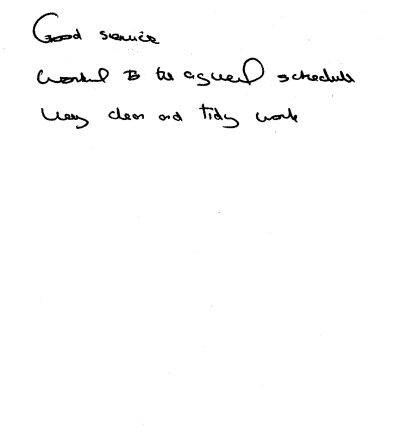 Good service
Worked to the agreed schedule
Very clean and tidy work